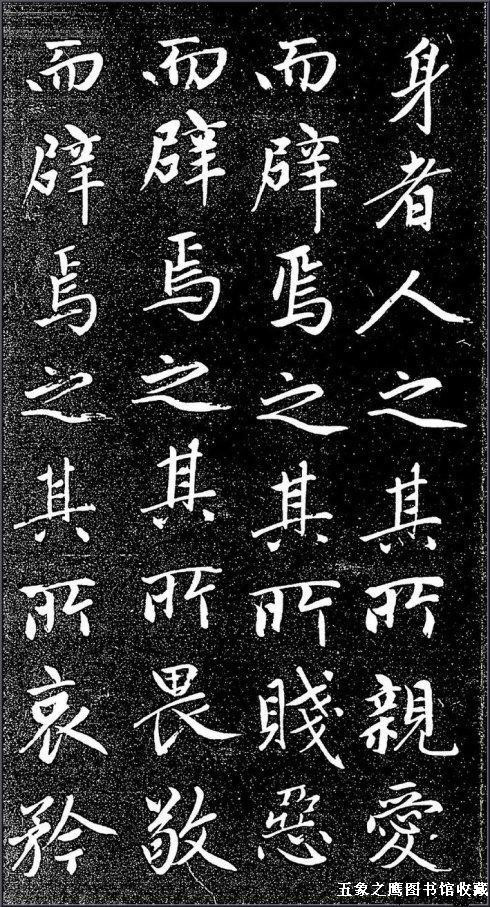 身者人之其所親愛
而辟焉之其所賤惡
而辟焉之其所畏敬
而辟焉之其所哀矜
五象之鹰图书馆收藏